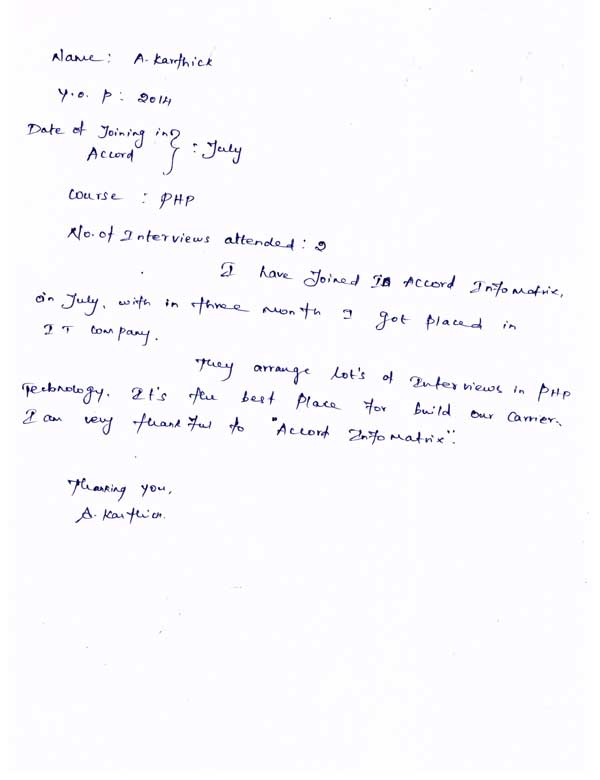 Name : A. Karthick
Y.O.P : 2014
Date of Joining in
Accord } : July
Course : PHP
No. of Interviews attended : 2
I have Joined In Accord Infomatrix,
on July, with in three month I got placed in
IT company.
They arrange lot's of Interviews in PHP
Technology. It's the best place for build our carrier.
I am very thankful to "Accord Infomatrix".
Thanking you,
A. Karthick.